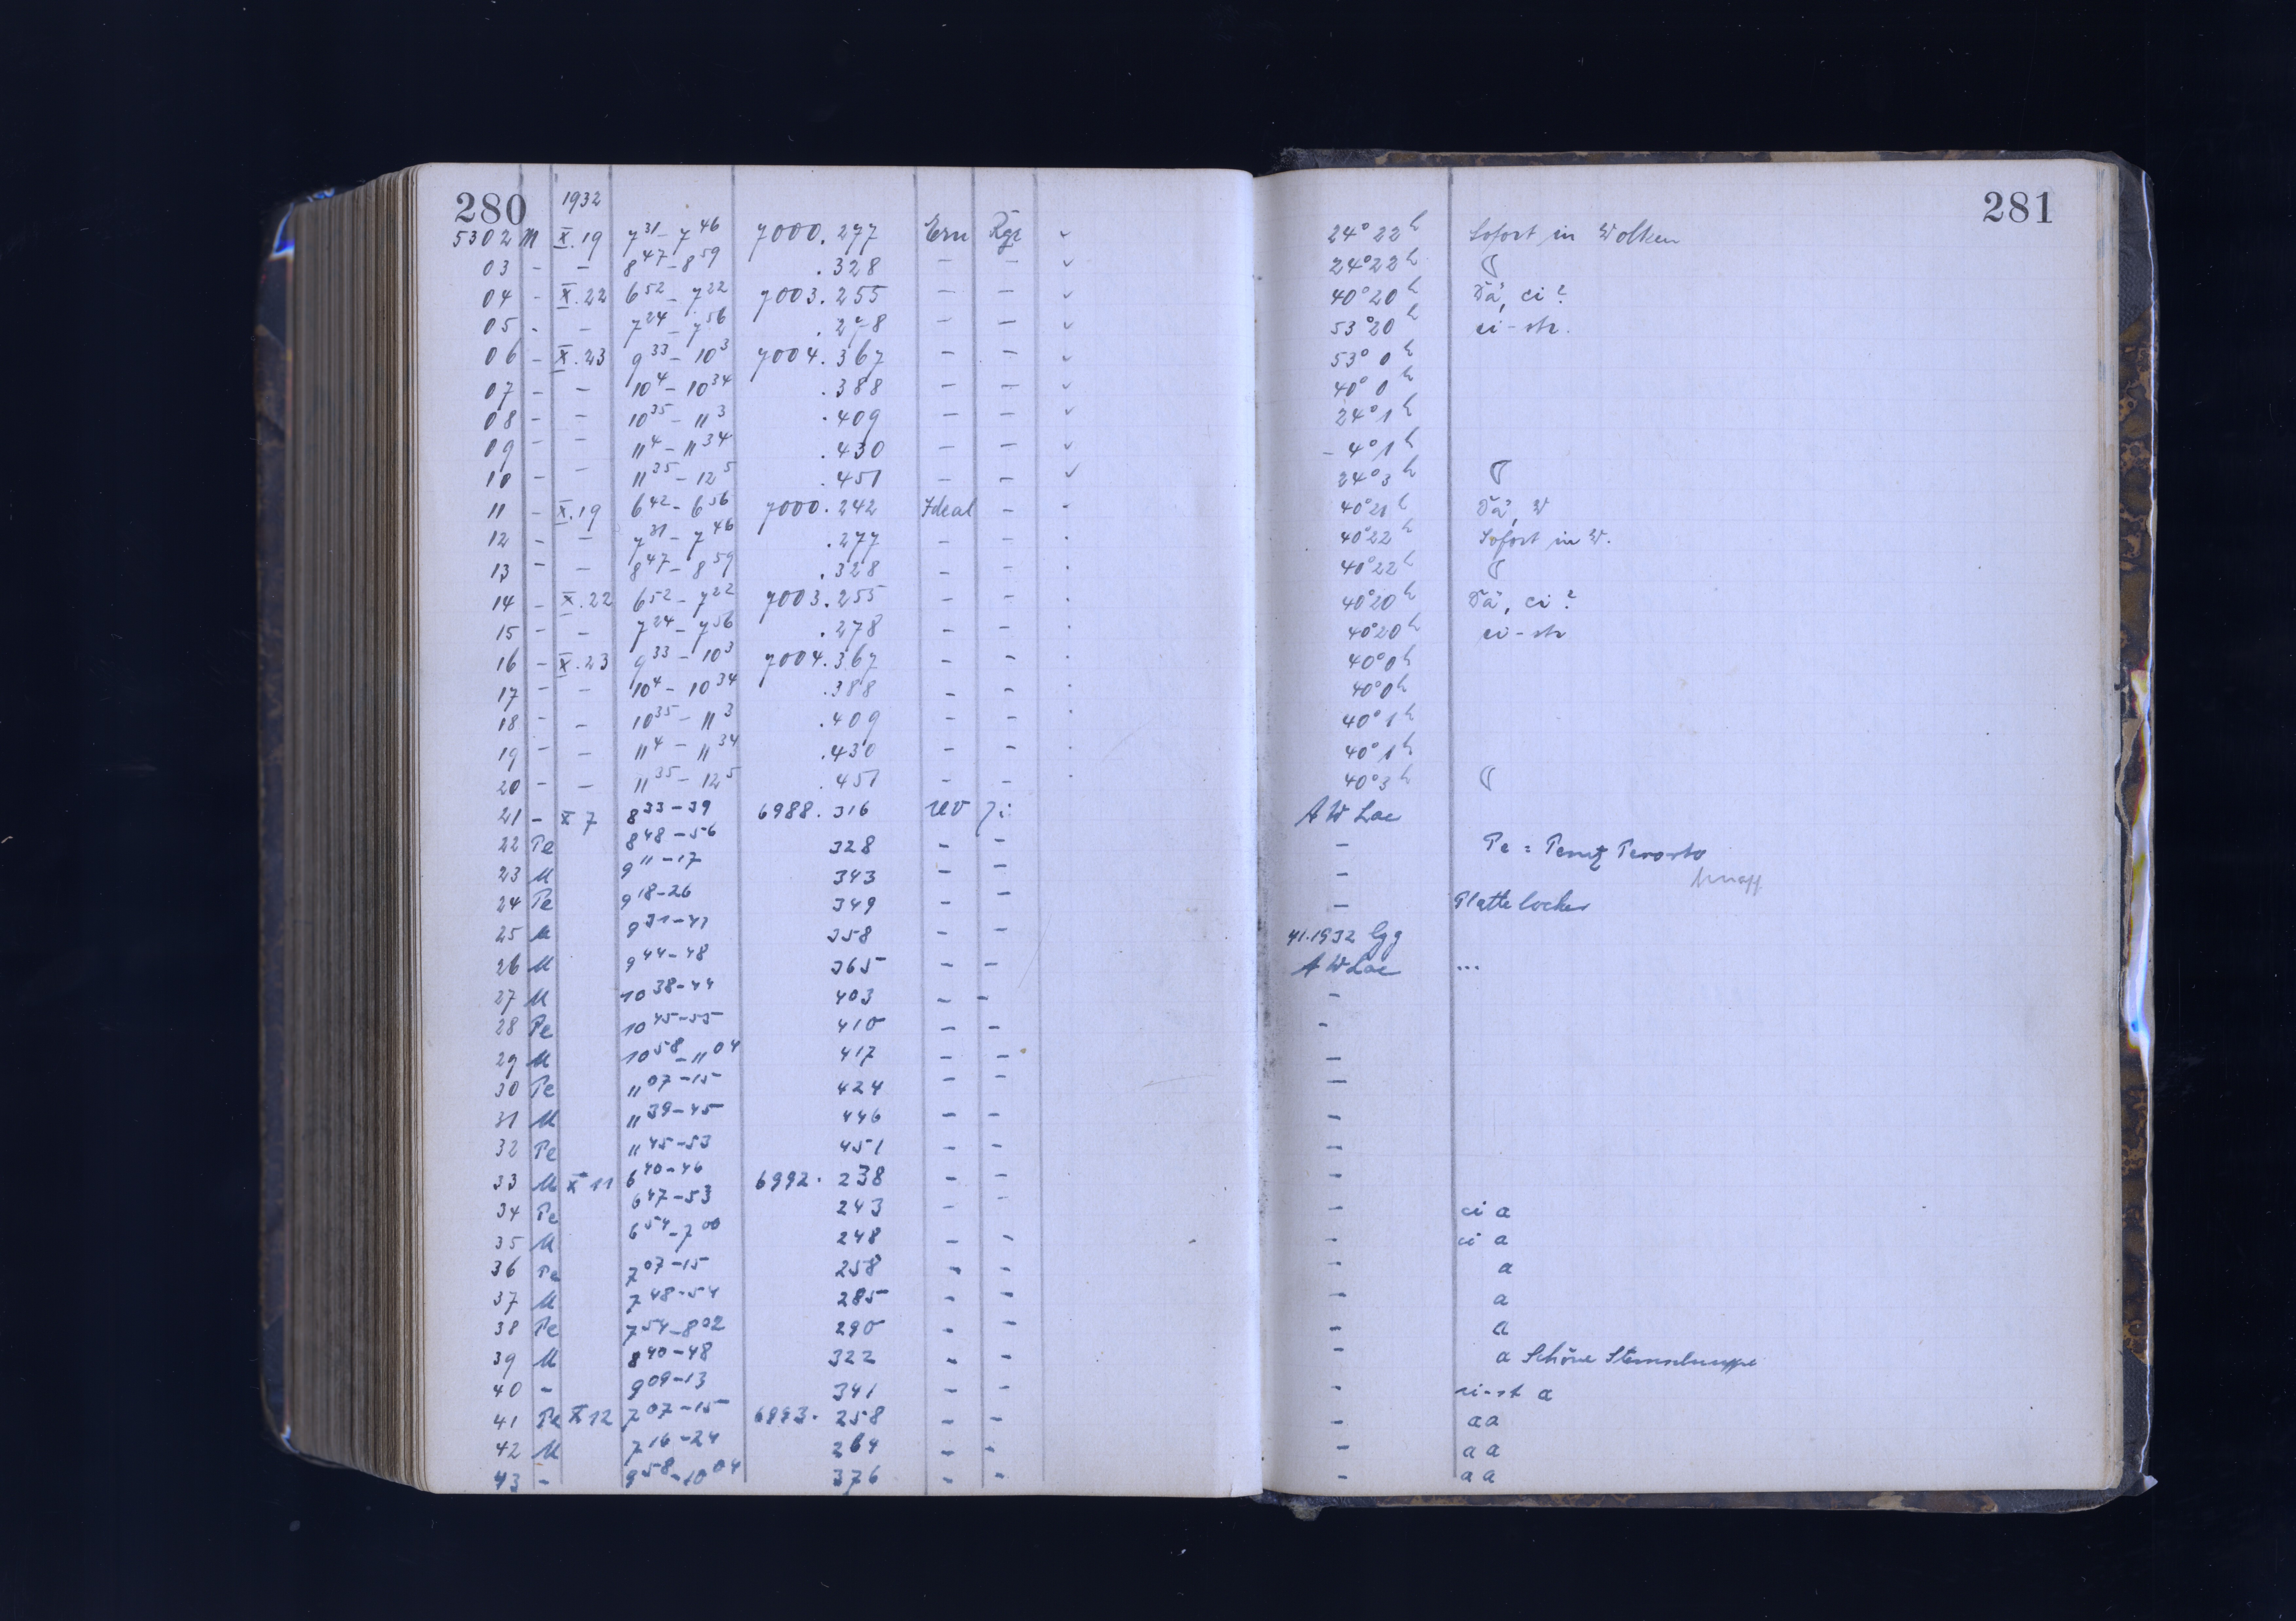 280 1932 281
5302 M X.19 7 31 - 7 46 7000.277 Ern Rgr ✓ 24° 22 h Sofort in Wolken
03 - - 8 47 - 8 59 .328 - - ✓ 24° 22 h ☾
04 - X.22 6 52 - 7 22 7003.255 - - ✓ 40° 20 h Dä, ci?
05 - - 7 24 - 7 56 .278 - - ✓ 53° 20 h ci-str.
06 - X.23 9 33 - 10 3 7004.367 - - ✓ 53° 0 h
07 - - 10 4 - 10 34 .388 - - ✓ 40° 0 h
08 - - 10 35 - 11 3 .409 - - ✓ 24° 1 h
09 - - 11 4 - 11 34 .430 - - ✓ -4° 1 h
10 - - 11 35 - 12 5 .451 - - ✓ 24° 3 h ☾
11 - X.19 6 42 - 6 56 7000.242 Ideal - - 40° 21 h Dä, W
12 - - 7 31 - 7 46 .277 - - . 40° 22 h Sofort in W.
13 - - 8 47 - 8 59 .328 - - . 40° 22 h ☾
14 - X.22 6 52 - 7 22 7003.255 - - . 40° 20 h Dä, ci?
15 - - 7 24 - 7 56 .278 - - . 40° 20 h ci-str
16 - X.23 9 33 - 10 3 7004.367 - - . 40° 0 h
17 - - 10 4 - 10 34 .388 - - . 40° 0 h
18 - - 10 35 - 11 3 .409 - - . 40° 1 h
19 - - 11 4 - 11 34 .430 - - . 40° 1 h
20 - - 11 35 - 12 5 .451 - - . 40° 3 h ☾
21 - X 7 8 33-39 6988.316 UV Zi: AW Lac
22 Pe 8 48-56 328 - - - Pe = Perutz Perorto
23 M 9 11-17 343 - - -
24 Pe 9 18-26 349 - - - Platte locker
25 M 9 31-41 358 - - 41.1932 Cyg
26 M 9 44-48 365 - - AW Lac ...
27 M 10 38-44 403 - - -
28 Pe 10 45-55 410 - - -
29 M 10 58 - 11 04 417 - - -
30 Pe 11 07-15 424 - - -
31 M 11 39-45 446 - - -
32 Pe 11 45-53 451 - - -
33 M X 11 6 40-46 6992.238 - - -
34 Pe 6 47-53 243 - - - ci a
35 M 6 54 - 7 00 248 - - - ci a
36 Pe 7 07-15 258 - - - a
37 M 7 48-54 285 - - - a
38 Pe 7 54 - 8 02 290 - - - a
39 M 8 40-48 322 - - - a Schöne Sternschnuppe
40 - 9 09-13 341 - - - ci-st a
41 Pe X 12 7 07-15 6993.258 - - - aa
42 M 7 16-24 264 - - - aa
43 - 9 58 - 10 04 376 - - - aa